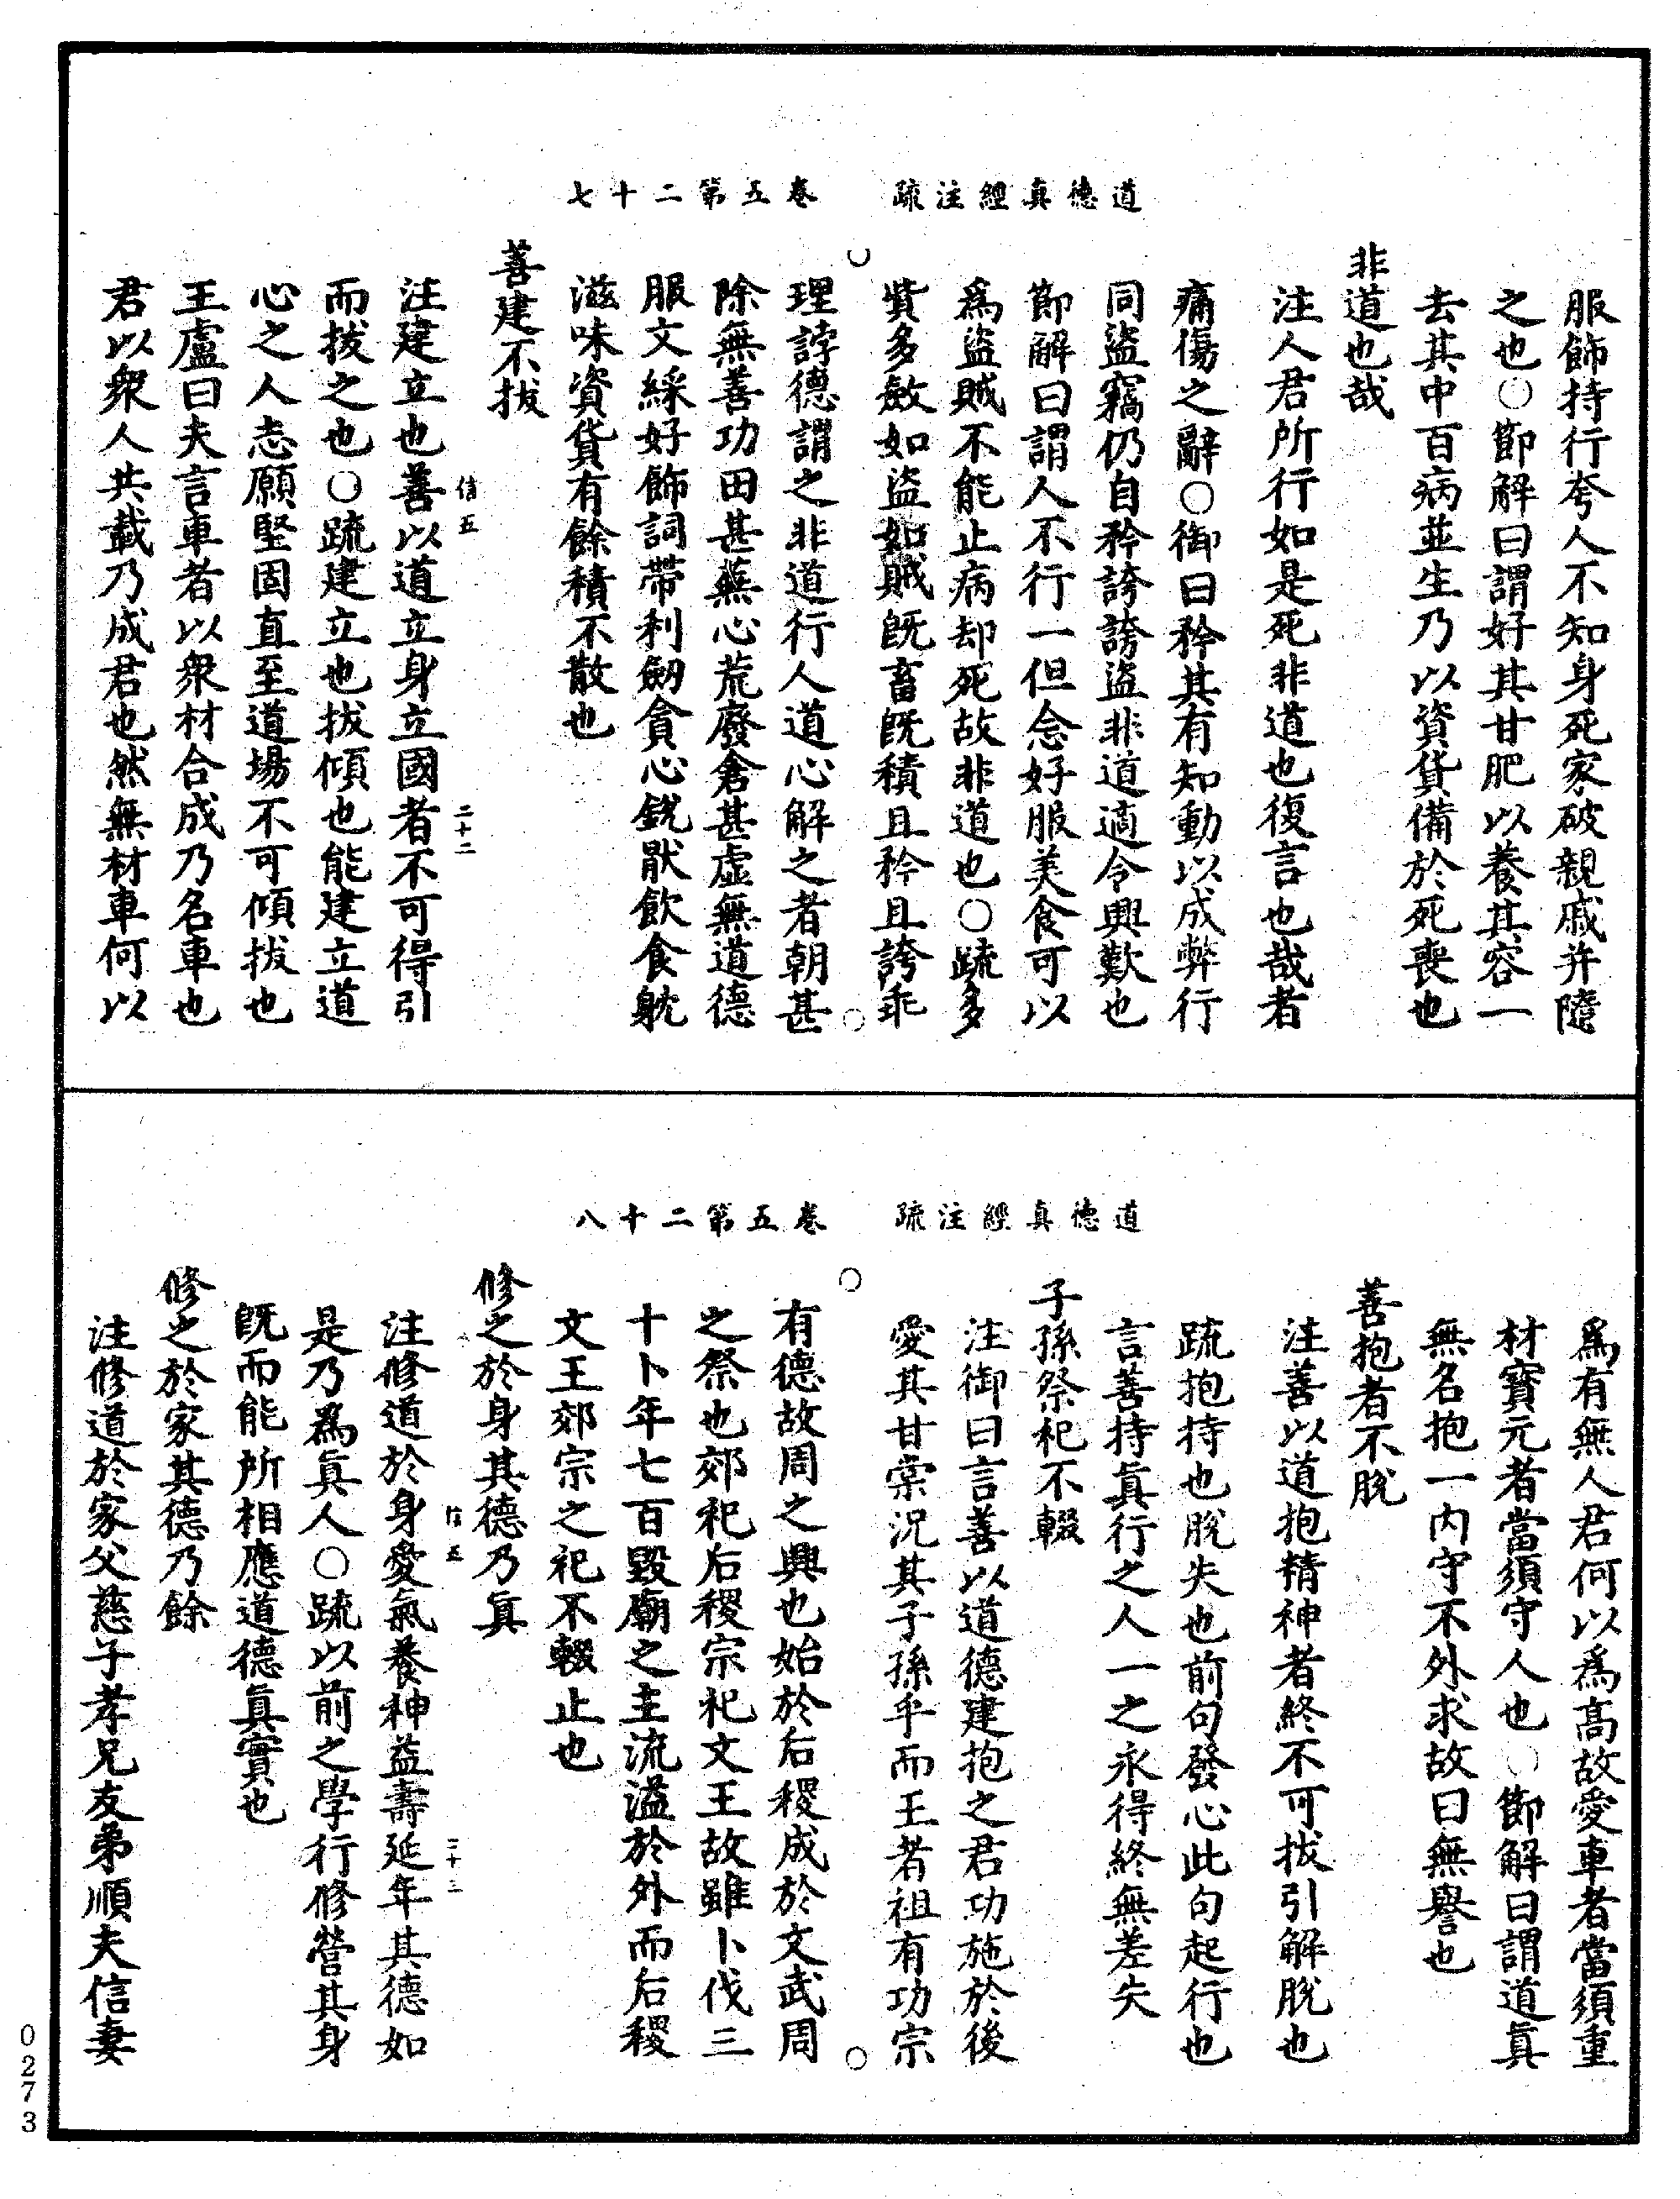 道德真經注疏　卷五第二十七
服飾持行夸人不知身死家破親戚并隨
之也○節解曰謂好其甘肥以養其容一
去其中百病並生乃以資貨備於死喪也
非道也哉
注人君所行如是死非道也復言也哉者
痛傷之辭○御曰矜其有知動以成弊行
同盜竊仍自矜誇誇盜非道適令興歎也
節解曰謂人不行一但念好服美食可以
為盜賊不能止病却死故非道也○疏多
貲多斂如盜如賊既畜既積且矜且誇乖
理誖德謂之非道行人道心解之者朝甚
除無善功田甚蕪心荒廢倉甚虛無道德
服文綵好飾詞帶利劒貪心銳猒飲食躭
滋味資貨有餘積不散也
善建不拔
注建立也善以道立身立國者不可得引
而拔之也○疏建立也拔傾也能建立道
心之人志願堅固直至道場不可傾拔也
王盧曰夫言車者以衆材合成乃名車也
君以衆人共載乃成君也然無材車何以
信五
二十二
道德真經注疏　卷五第二十八
爲有無人君何以爲高故愛車者當須重
材寶元者當須守人也○節解曰謂道眞
無名抱一內守不外求故曰無譽也
善抱者不脫
注善以道抱精神者終不可拔引解脫也
疏抱持也脫失也前句發心此句起行也
言善持眞行之人一之永得終無差失
子孫祭祀不輟
注御曰言善以道德建抱之君功施於後
愛其甘棠況其子孫乎而王者祖有功宗
有德故周之興也始於后稷成於文武周
之祭也郊祀后稷宗祀文王故雖卜伐三
十卜年七百毀廟之主流溢於外而后稷
文王郊宗之祀不輟止也
修之於身其德乃眞
注修道於身愛氣養神益壽延年其德如
是乃爲眞人○疏以前之學行修營其身
既而能所相應道德眞實也
修之於家其德乃餘
注修道於家父慈子孝兄友弟順夫信妻
信五
二十三
0273